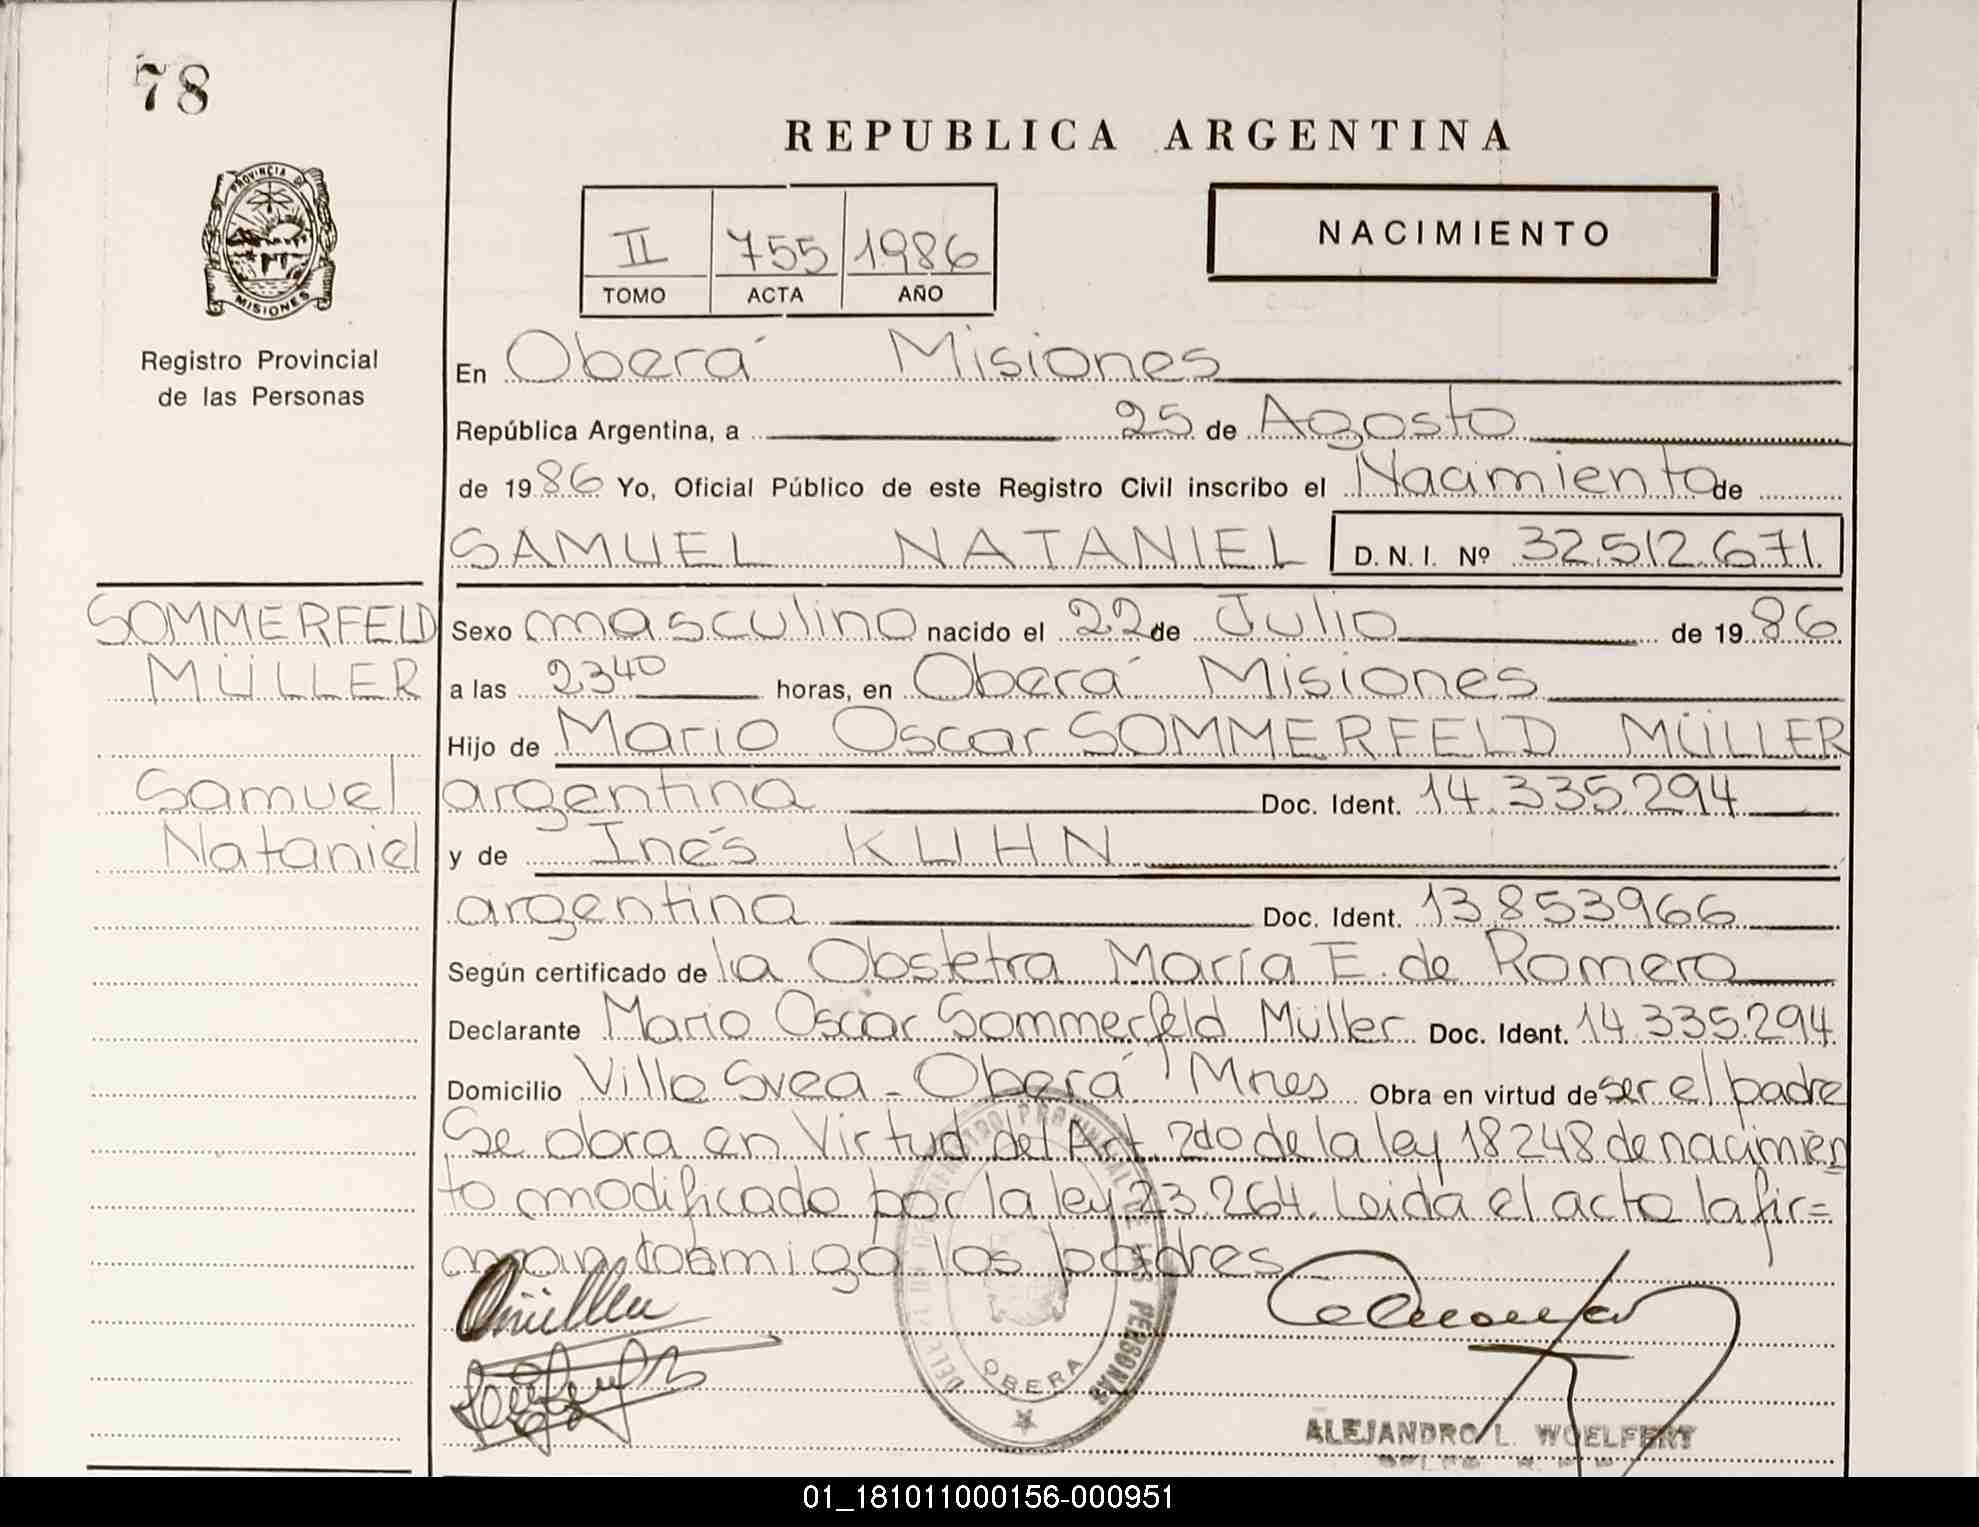 78
REPUBLICA ARGENTINA
PROVINCIA DE
MISIONES
II 755 1986
TOMO ACTA AÑO
NACIMIENTO
Registro Provincial
de las Personas
En Oberá Misiones
República Argentina, a 25 de Agosto
de 1986 Yo, Oficial Público de este Registro Civil inscribo el Nacimiento de
SAMUEL NATANIEL D. N. I. Nº 32.512.671.
SOMMERFELD
MÜLLER
Samuel
Nataniel
Sexo masculino nacido el 22 de Julio de 1986
a las 2340 horas, en Oberá Misiones
Hijo de Mario Oscar SOMMERFELD MÜLLER
argentina Doc. Ident. 14.335.294
y de Inés KUHN
argentina Doc. Ident. 13.853.966
Según certificado de la Obstetra María E. de Romero
Declarante Mario Oscar Sommerfeld Müller Doc. Ident. 14.335.294
Domicilio Villa Svea - Oberá Mnes Obra en virtud de ser el padre
Se obra en Virtud del Art. 2do de la ley 18248 de nacimien
to modificado por la ley 23.264. Leida el acta la fir=
man conmigo los padres
REGISTRO PROVINCIAL DE LAS PERSONAS
OBERA
ALEJANDRO L. WOELFERT
01_181011000156-000951